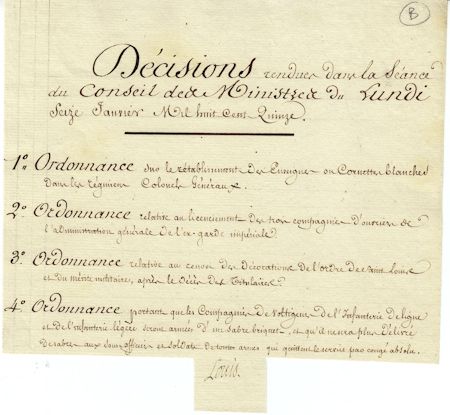 B
Décisions rendues dans la Séance
du Conseil des Ministres du Lundi
Seize Janvier Mil huit Cent Quinze.
1º Ordonnance sur le rétablissement des Enseignes ou Cornettes blanches
dans les régimens Colonels Généraux.
2º Ordonnance relative au licenciement des trois compagnies d'ouvriers de
l'administration générale de l'ex-garde impériale
3º Ordonnance relative au des Décorations de l'ordre de Saint Louis
et du mérite militaires, après le Décès des titulaires
4º Ordonnance portant que les Compagnies de Voltigeurs de l'Infanterie de ligne
et de l'infanterie légère seront armées d'un Sabre briquet, et qu'il ne sera plus délivré
de sabres aux sous officiers et soldats de toutes armes qui quittent le service par congé absolu.
Louis.